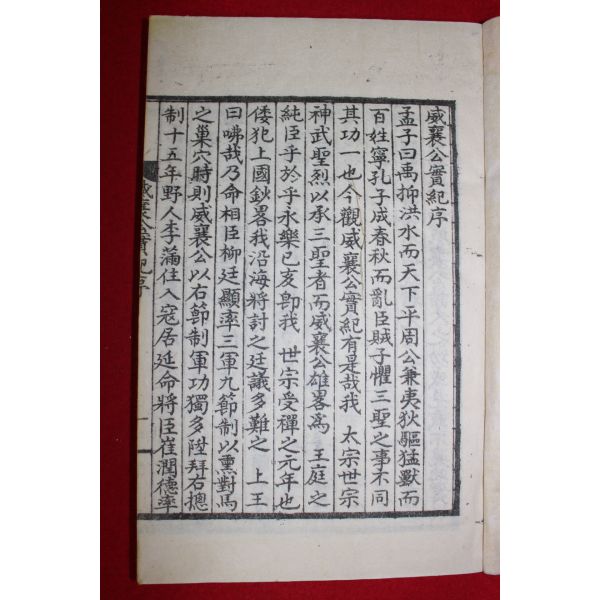 威襄公實紀序
孟子曰禹抑洪水而天下平周公兼夷狄驅猛獸而
百姓寧孔子成春秋而亂臣賊子懼三聖之事不同
其功一也今觀威襄公實紀有是哉我 太宗世宗
神武聖烈以承三聖者而威襄公雄畧爲 王庭之
純臣乎於乎永樂已亥卽我 世宗受禪之元年也
倭犯上國鈔畧我沿海將討之廷議多難之 上王
曰咈哉乃命相臣柳廷顯率三軍九節制以熏對馬
之巢穴時則威襄公以右節制軍功獨多陞拜右摠
制十五年野人李滿住入寇居延命將臣崔潤德率
威襄公實紀序